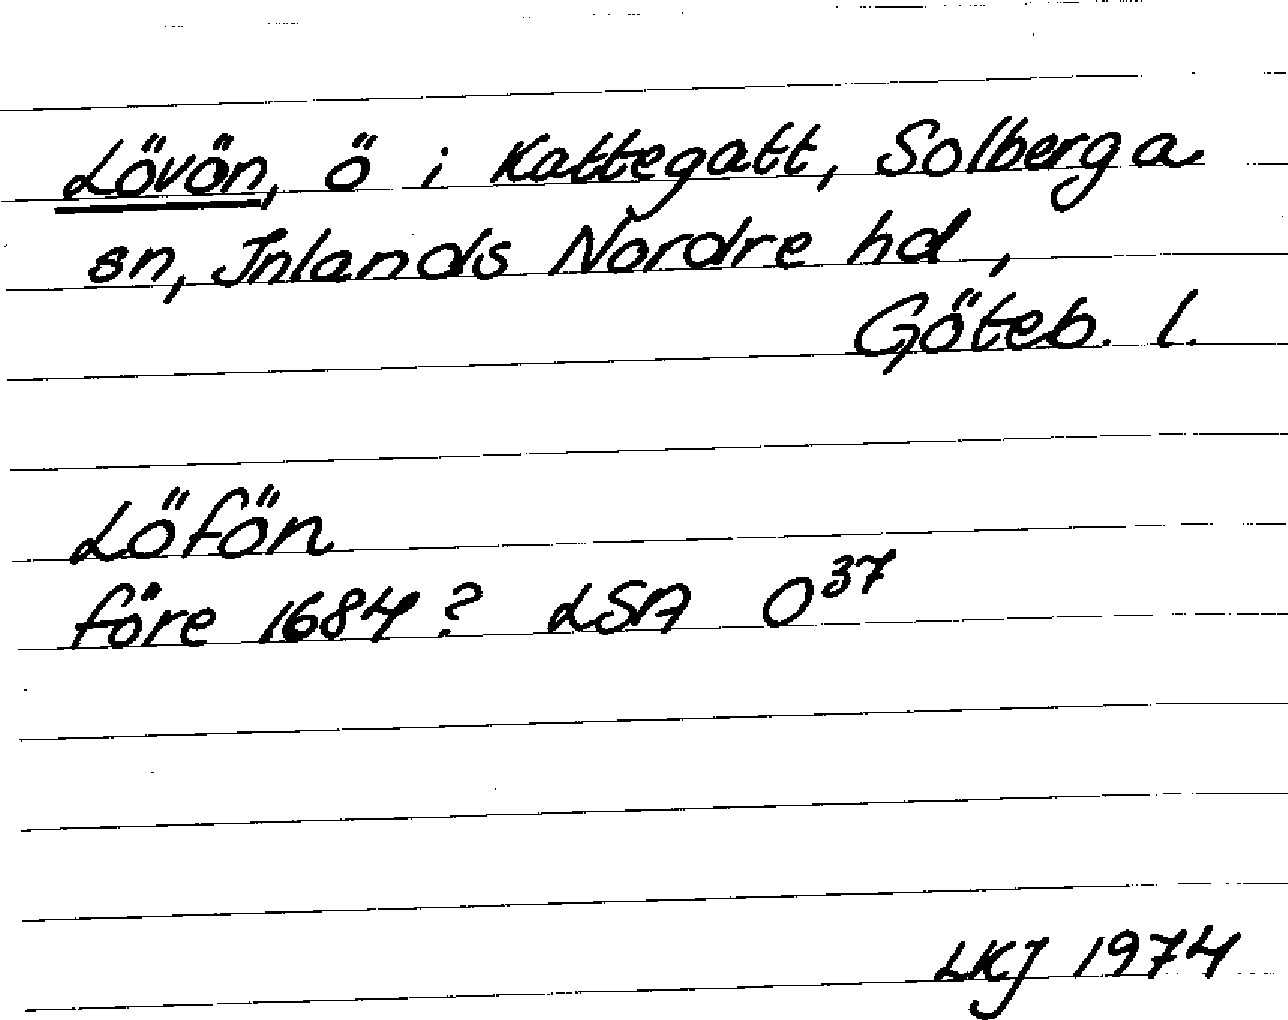 Lövön, ö i Kattegatt, Solberga
sn, Inlands Nordre hd,
Göteb. l.
Löfön
före 1684? LSA O³⁷
LKJ 1974